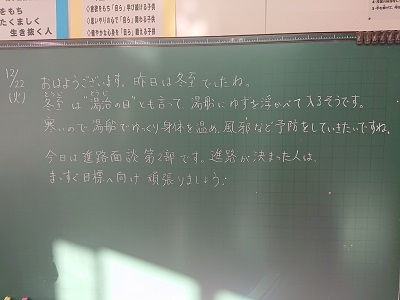 をもち
たくましく
生き抜く人
◇意欲をもち「自ら」学び続ける子供
◇思いやりの心で「自ら」関わる子供
◇健やかな心身を「自ら」鍛える子供
12/22
(火)
おはようございます。昨日は冬至でしたね。
とうじ とうじ
冬至は“湯治の日”とも言って、湯船にゆずを浮かべて入るそうです。
寒いので湯船でゆっくり身体を温め、風邪など予防をしていきたいですね。
今日は進路面談第2部です。進路が決まった人は、
まっすぐ目標へ向け頑張りましょう!